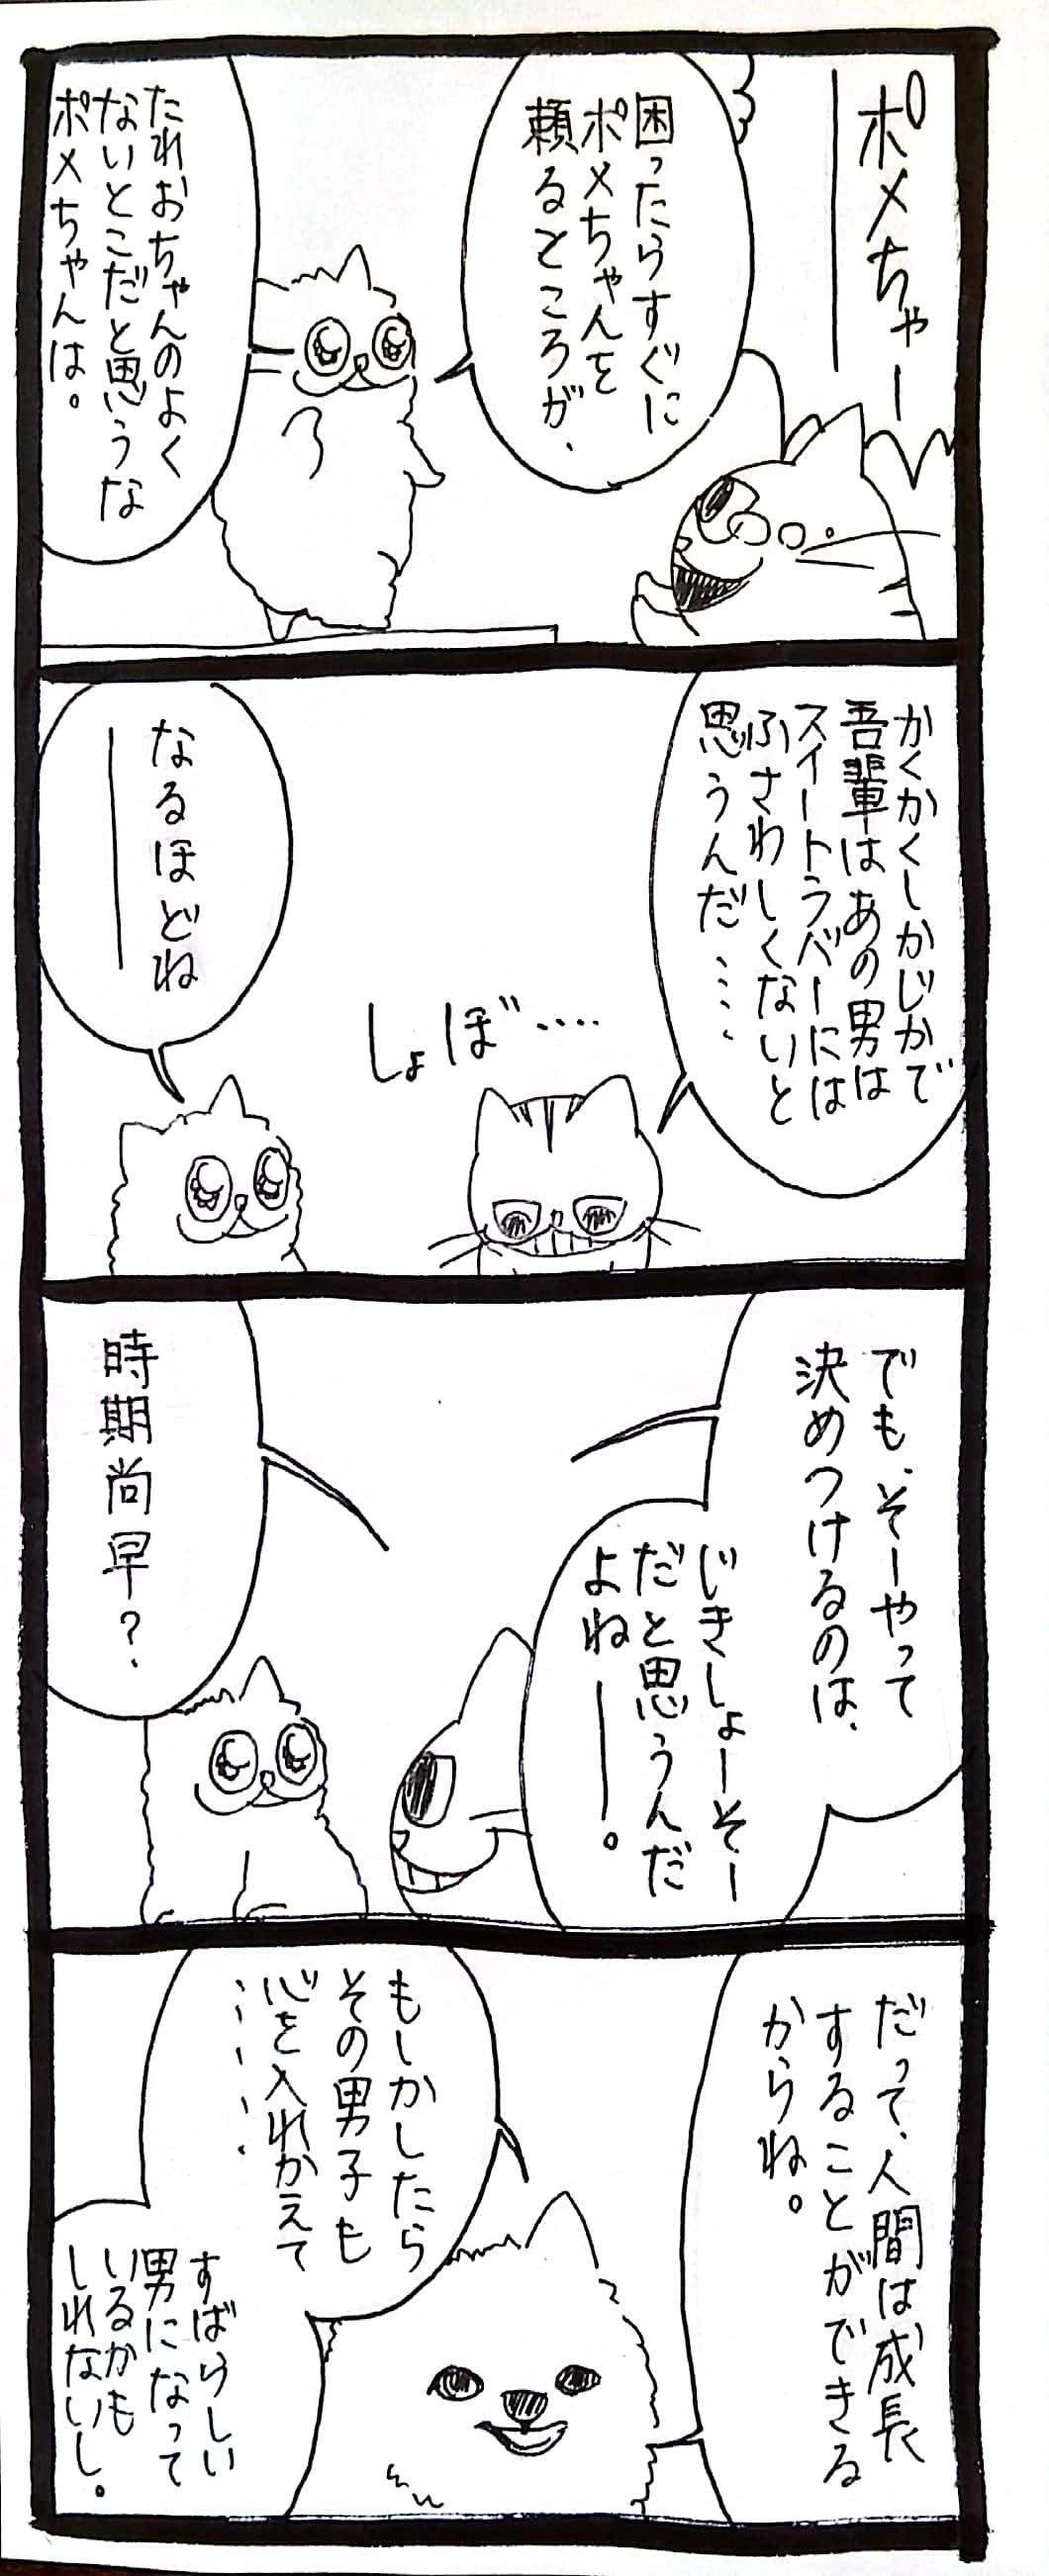 ポメちゃー
困ったらすぐに
ポメちゃんを
頼るところが、
たれおちゃんのよく
ないとこだと思うな
ポメちゃんは。
かくかくしかじかで
吾輩はあの男は
スイートラバーには
ふさわしくないと
思うんだ……
しょぼ….
なるほどね
でも、そーやって
決めつけるのは、
じきしょーそー
だと思うんだ
よねー。
時期尚早?
だって、人間は成長
することができる
からね。
もしかしたら
その男子も
心を入れかえて
……
すばらしい
男になって
いるかも
しれないし。